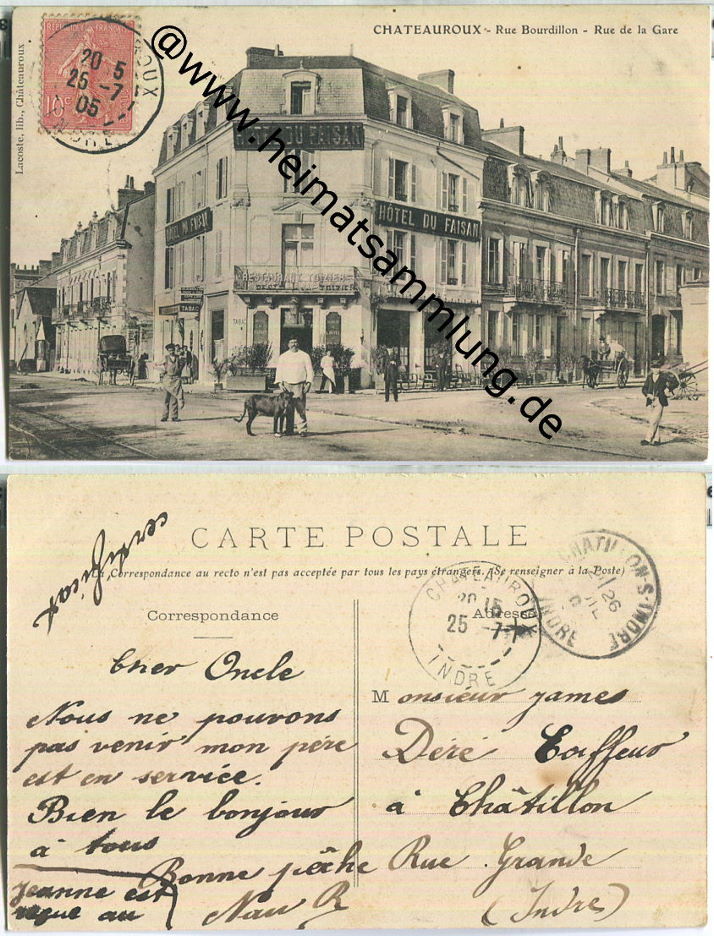 CHATEAUROUX - Rue Bourdillon - Rue de la Gare
Lacoste, lib., Châteauroux
10c
20 5
25 -7
05
INDRE
@www.heimatsammlung.de
HÔTEL DU FAISAN
HÔTEL DU FAISAN
HÔTEL DU FAISAN
RESTAURANT
TABAC
certificat
CARTE POSTALE
La Correspondance au recto n'est pas acceptée par tous les pays étrangers. (Se renseigner à la Poste)
Correspondance
Adresse
CHATEAUROUX
20 15
25 -7
INDRE
CHATILLON-S-INDRE
26
INDRE
Cher Oncle
Nous ne pouvons
pas venir mon père
est en service.
Bien le bonjour
à tous
Bonne pêche
Jeanne est
reçue au
Monsieur James
Déré Coiffeur
à Châtillon
Rue Grande
(Indre)